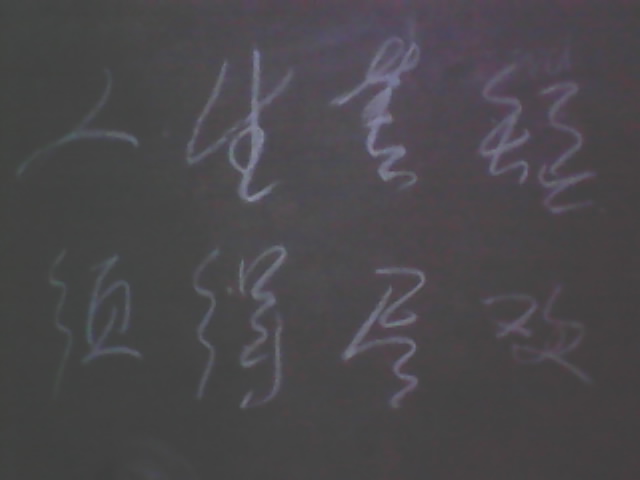 人生苦短
须得尽欢